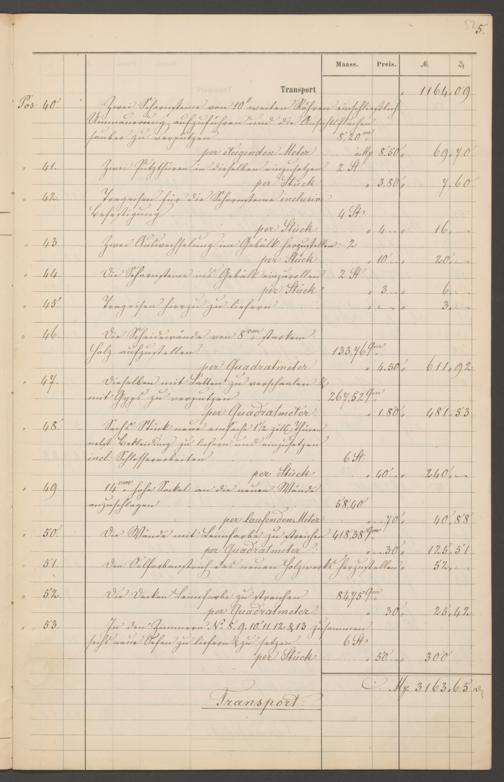 5.
Maass. Preis. M ₰
Transport 1164.09
Pos. 40. Zwei Schornsteine von 10" weiten Röhren einschließlich
Ummauerung aufzuführen und die
sauber zu verputzen 8,20 m
per steigenden Meter à M 8.50 69.70
" 41. Zwei Putzthüren in dieselben einzusetzen 2 St
per Stück " 3.80 7.60
" 42. Trageisen für die Schornsteine inclusive
Befestigung 4 St.
per Stück " 4.- 16.-
" 43. Zwei Auswechselung im Gebälk herzustellen 2
per Stück " 10.- 20.-
" 44. Die Schornsteine ins Gebälk einzurollen 2 St
per Stück " 3.- 6.-
" 45. Trageisen hierzu zu liefern 3.-
" 46. Die Scheidewände von 8 cm starkem
Holz aufzustellen 133,76 qm
per Quadratmeter " 4.50 611.92
" 47. Dieselben mit Latten zu verschaalen &
mit Gyps zu verputzen 267,52 qm
per Quadratmeter " 1.80 481.53
" 48. Sechs Stück neue einfache 1½ zöll. Thüren
nebst Bekleidung zu liefern und einzusetzen
incl. Schlosserarbeiten 6 St
per Stück " 40.- 240.-
" 49. 14 cm hohe Sockel an die neuen Wände
anzuschlagen 58,40
per laufenden Meter " -.70 40.88
" 50. Die Wände mit Leimfarbe zu streichen 418,38 qm
per Quadratmeter " -.30 125.51
" 51. Den Oelfarbenstrich des neuen Holzwerks herzustellen 52.-
" 52. Die Decken Leimfarbe zu streichen 84,75 qm
per Quadratmeter " 30 25.42
" 53. In den Zimmern No 8. 9. 10. 11. 12 & 13 zusammen
sechs neue Oefen zu liefern & zu setzen 6 St.
per Stück " 50.- 300
M 3163.65 ₰
Transport